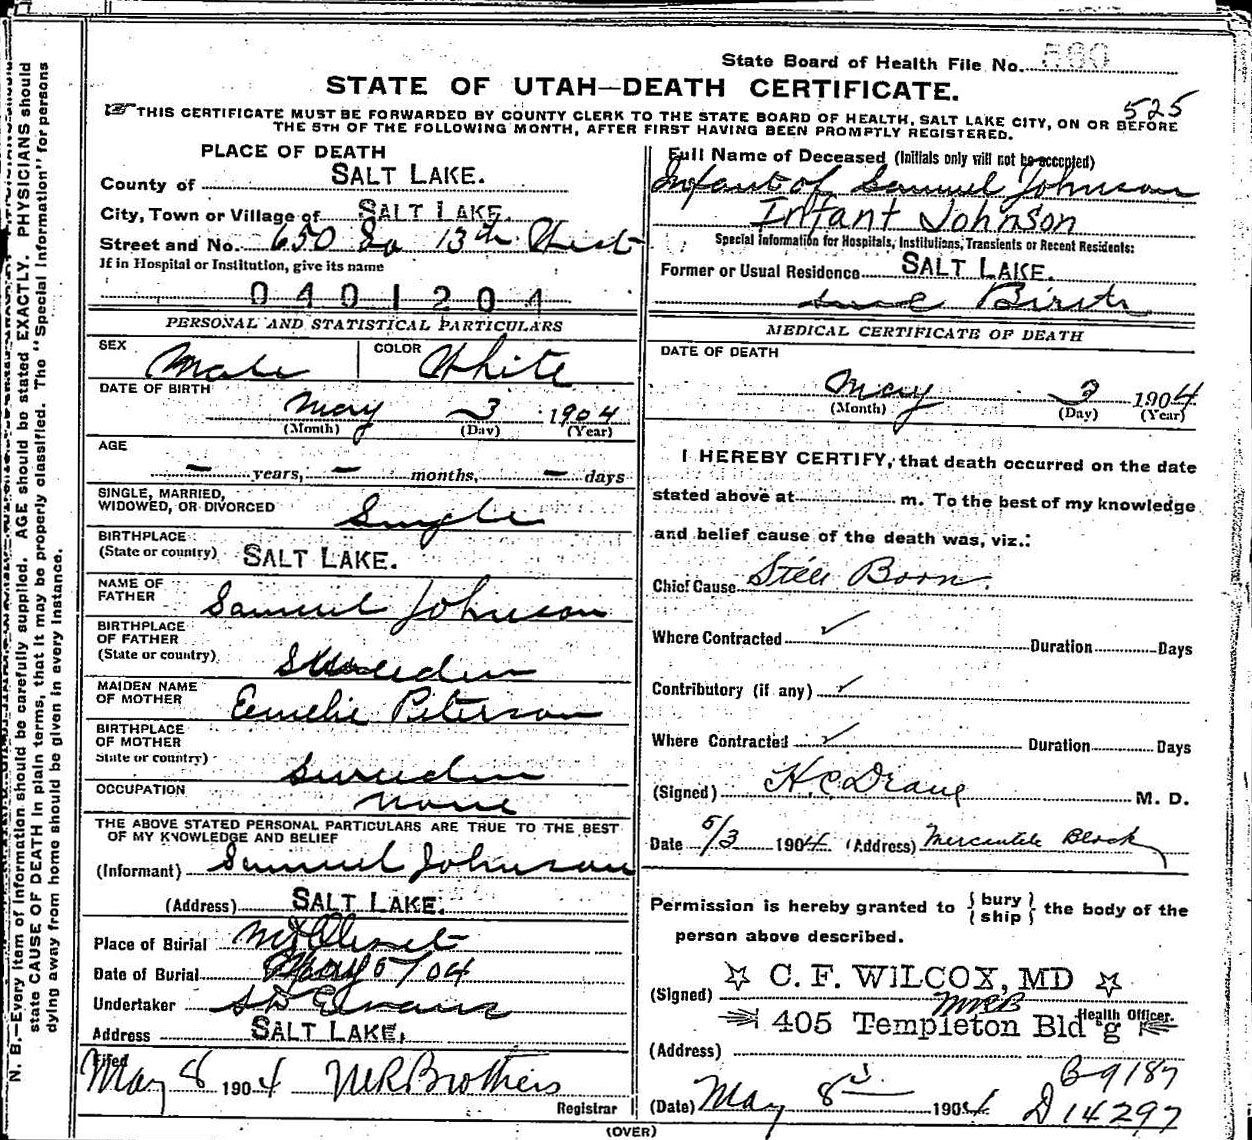 State Board of Health File No.
STATE OF UTAH—DEATH CERTIFICATE.
525
THIS CERTIFICATE MUST BE FORWARDED BY COUNTY CLERK TO THE STATE BOARD OF HEALTH, SALT LAKE CITY, ON OR BEFORE
THE 5TH OF THE FOLLOWING MONTH, AFTER FIRST HAVING BEEN PROMPTLY REGISTERED.
N. B.—Every item of information should be carefully supplied. AGE should be stated EXACTLY. PHYSICIANS should
state CAUSE OF DEATH in plain terms, that it may be properly classified. The "Special Information" for persons
dying away from home should be given in every instance.
PLACE OF DEATH
County of SALT LAKE.
City, Town or Village of SALT LAKE.
Street and No. 650 So 13th West
If in Hospital or Institution, give its name
0401204
PERSONAL AND STATISTICAL PARTICULARS
SEX Male COLOR White
DATE OF BIRTH
May 3 1904
(Month) (Day) (Year)
AGE
— years, — months, — days
SINGLE, MARRIED,
WIDOWED, OR DIVORCED Single
BIRTHPLACE
(State or country) SALT LAKE.
NAME OF
FATHER Samuel Johnson
BIRTHPLACE
OF FATHER
(State or country) Sweeden
MAIDEN NAME
OF MOTHER Eemelie Peterson
BIRTHPLACE
OF MOTHER
State or country) Sweeden
OCCUPATION None
THE ABOVE STATED PERSONAL PARTICULARS ARE TRUE TO THE BEST
OF MY KNOWLEDGE AND BELIEF
(Informant) Samuel Johnson
(Address) SALT LAKE.
Place of Burial Mt Olivet
Date of Burial May 5/04
Undertaker S D Evans
Address SALT LAKE.
Filed
May 8 1904 M R Brothers
Registrar
Full Name of Deceased (Initials only will not be accepted)
Infant of Samuel Johnson
Infant Johnson
Special Information for Hospitals, Institutions, Transients or Recent Residents:
Former or Usual Residence SALT LAKE.
Birth
MEDICAL CERTIFICATE OF DEATH
DATE OF DEATH
May 3 1904
(Month) (Day) (Year)
I HEREBY CERTIFY, that death occurred on the date
stated above at m. To the best of my knowledge
and belief cause of the death was, viz.:
Chief Cause Still Born.
Where Contracted ✓ Duration Days
Contributory (if any) ✓
Where Contracted ✓ Duration Days
(Signed) M. D.
Date 5/3 1904 (Address) Mercantile Block
Permission is hereby granted to { bury ship } the body of the
person above described.
(Signed) ☆ C. F. WILCOX, MD ☆
MRB Health Officer.
405 Templeton Bld'g
(Address)
B-9187
(Date) May 8 1904 D 14297
(OVER)